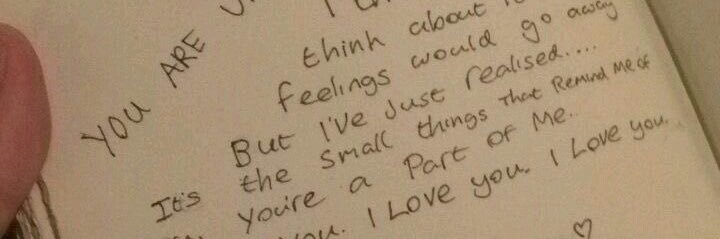 YOU ARE
think about
feelings would go away
But I've Just realised....
It's the small things that Remind Me of
You're a Part of Me..
you. I Love you. I Love you.